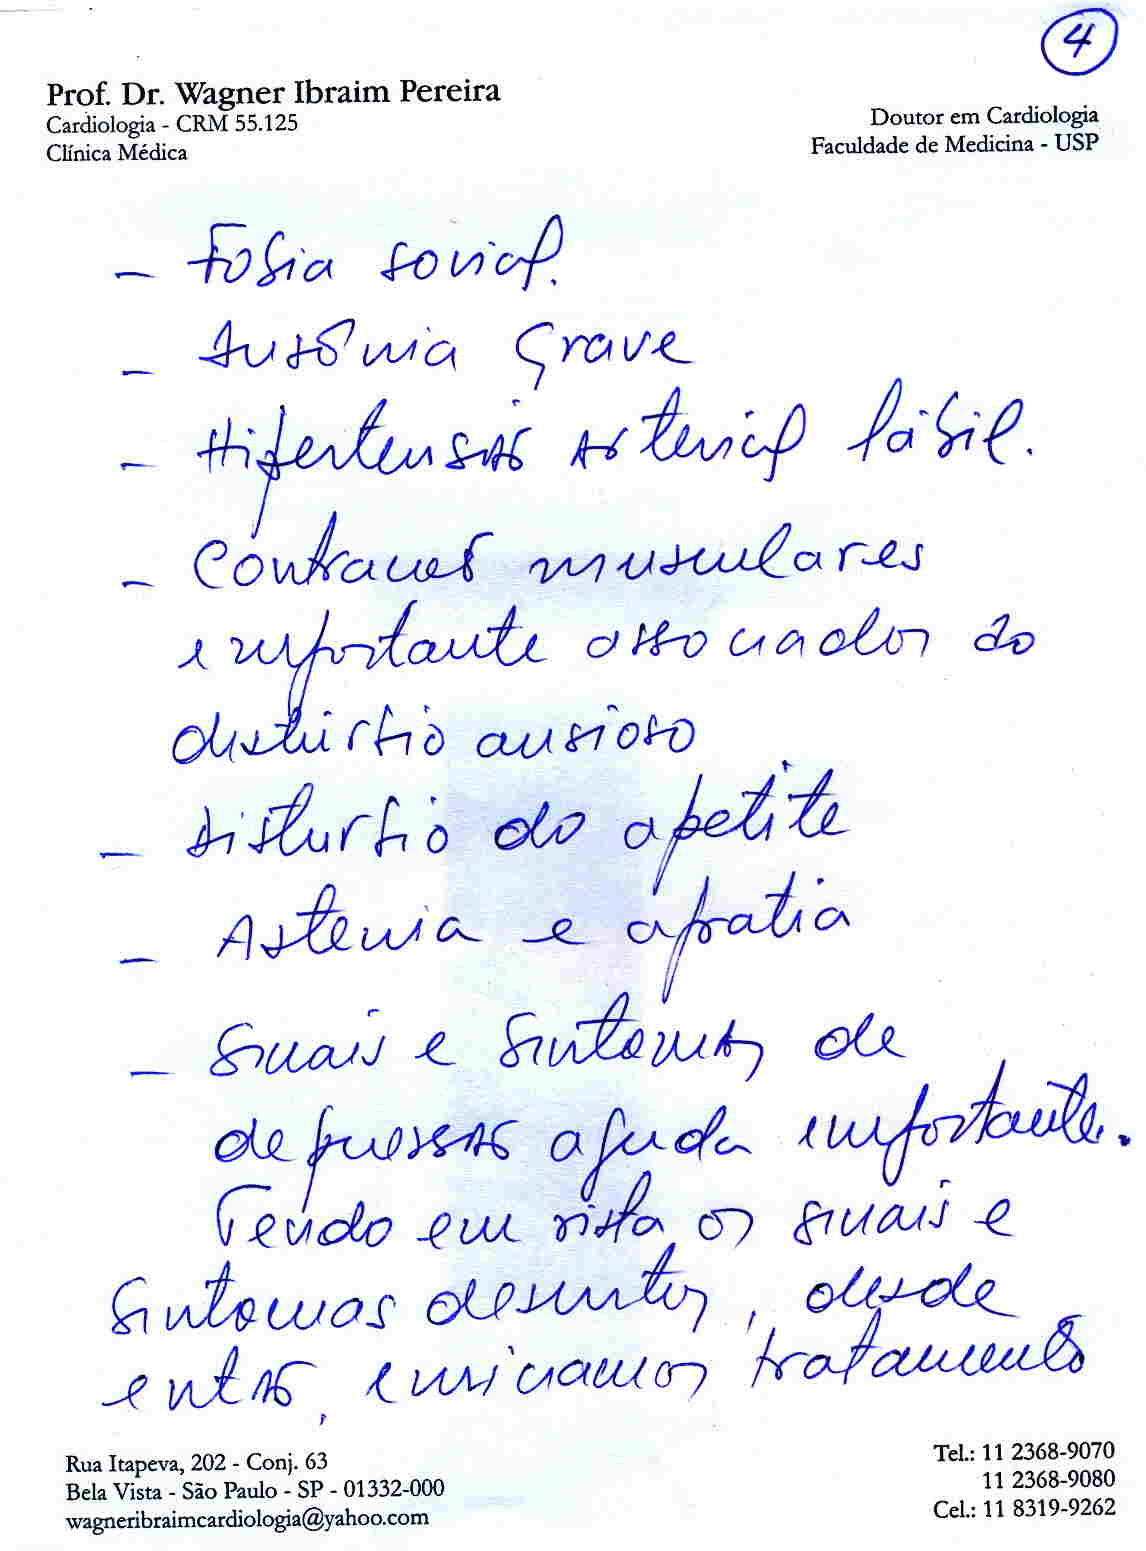 4
Prof. Dr. Wagner Ibraim Pereira
Cardiologia - CRM 55.125
Clínica Médica
Doutor em Cardiologia
Faculdade de Medicina - USP
- Fobia social.
- Insônia grave
- Hipertensão Arterial lábil.
- Contrações musculares
importante associados ao
distúrbio ansioso
- Distúrbio do apetite
- Astenia e apatia
- Sinais e sintomas de
depressão aguda importante.
Tendo em vista os sinais e
sintomas descritos, desde
então, iniciamos tratamento
Rua Itapeva, 202 - Conj. 63
Bela Vista - São Paulo - SP - 01332-000
wagneribraimcardiologia@yahoo.com
Tel.: 11 2368-9070
11 2368-9080
Cel.: 11 8319-9262